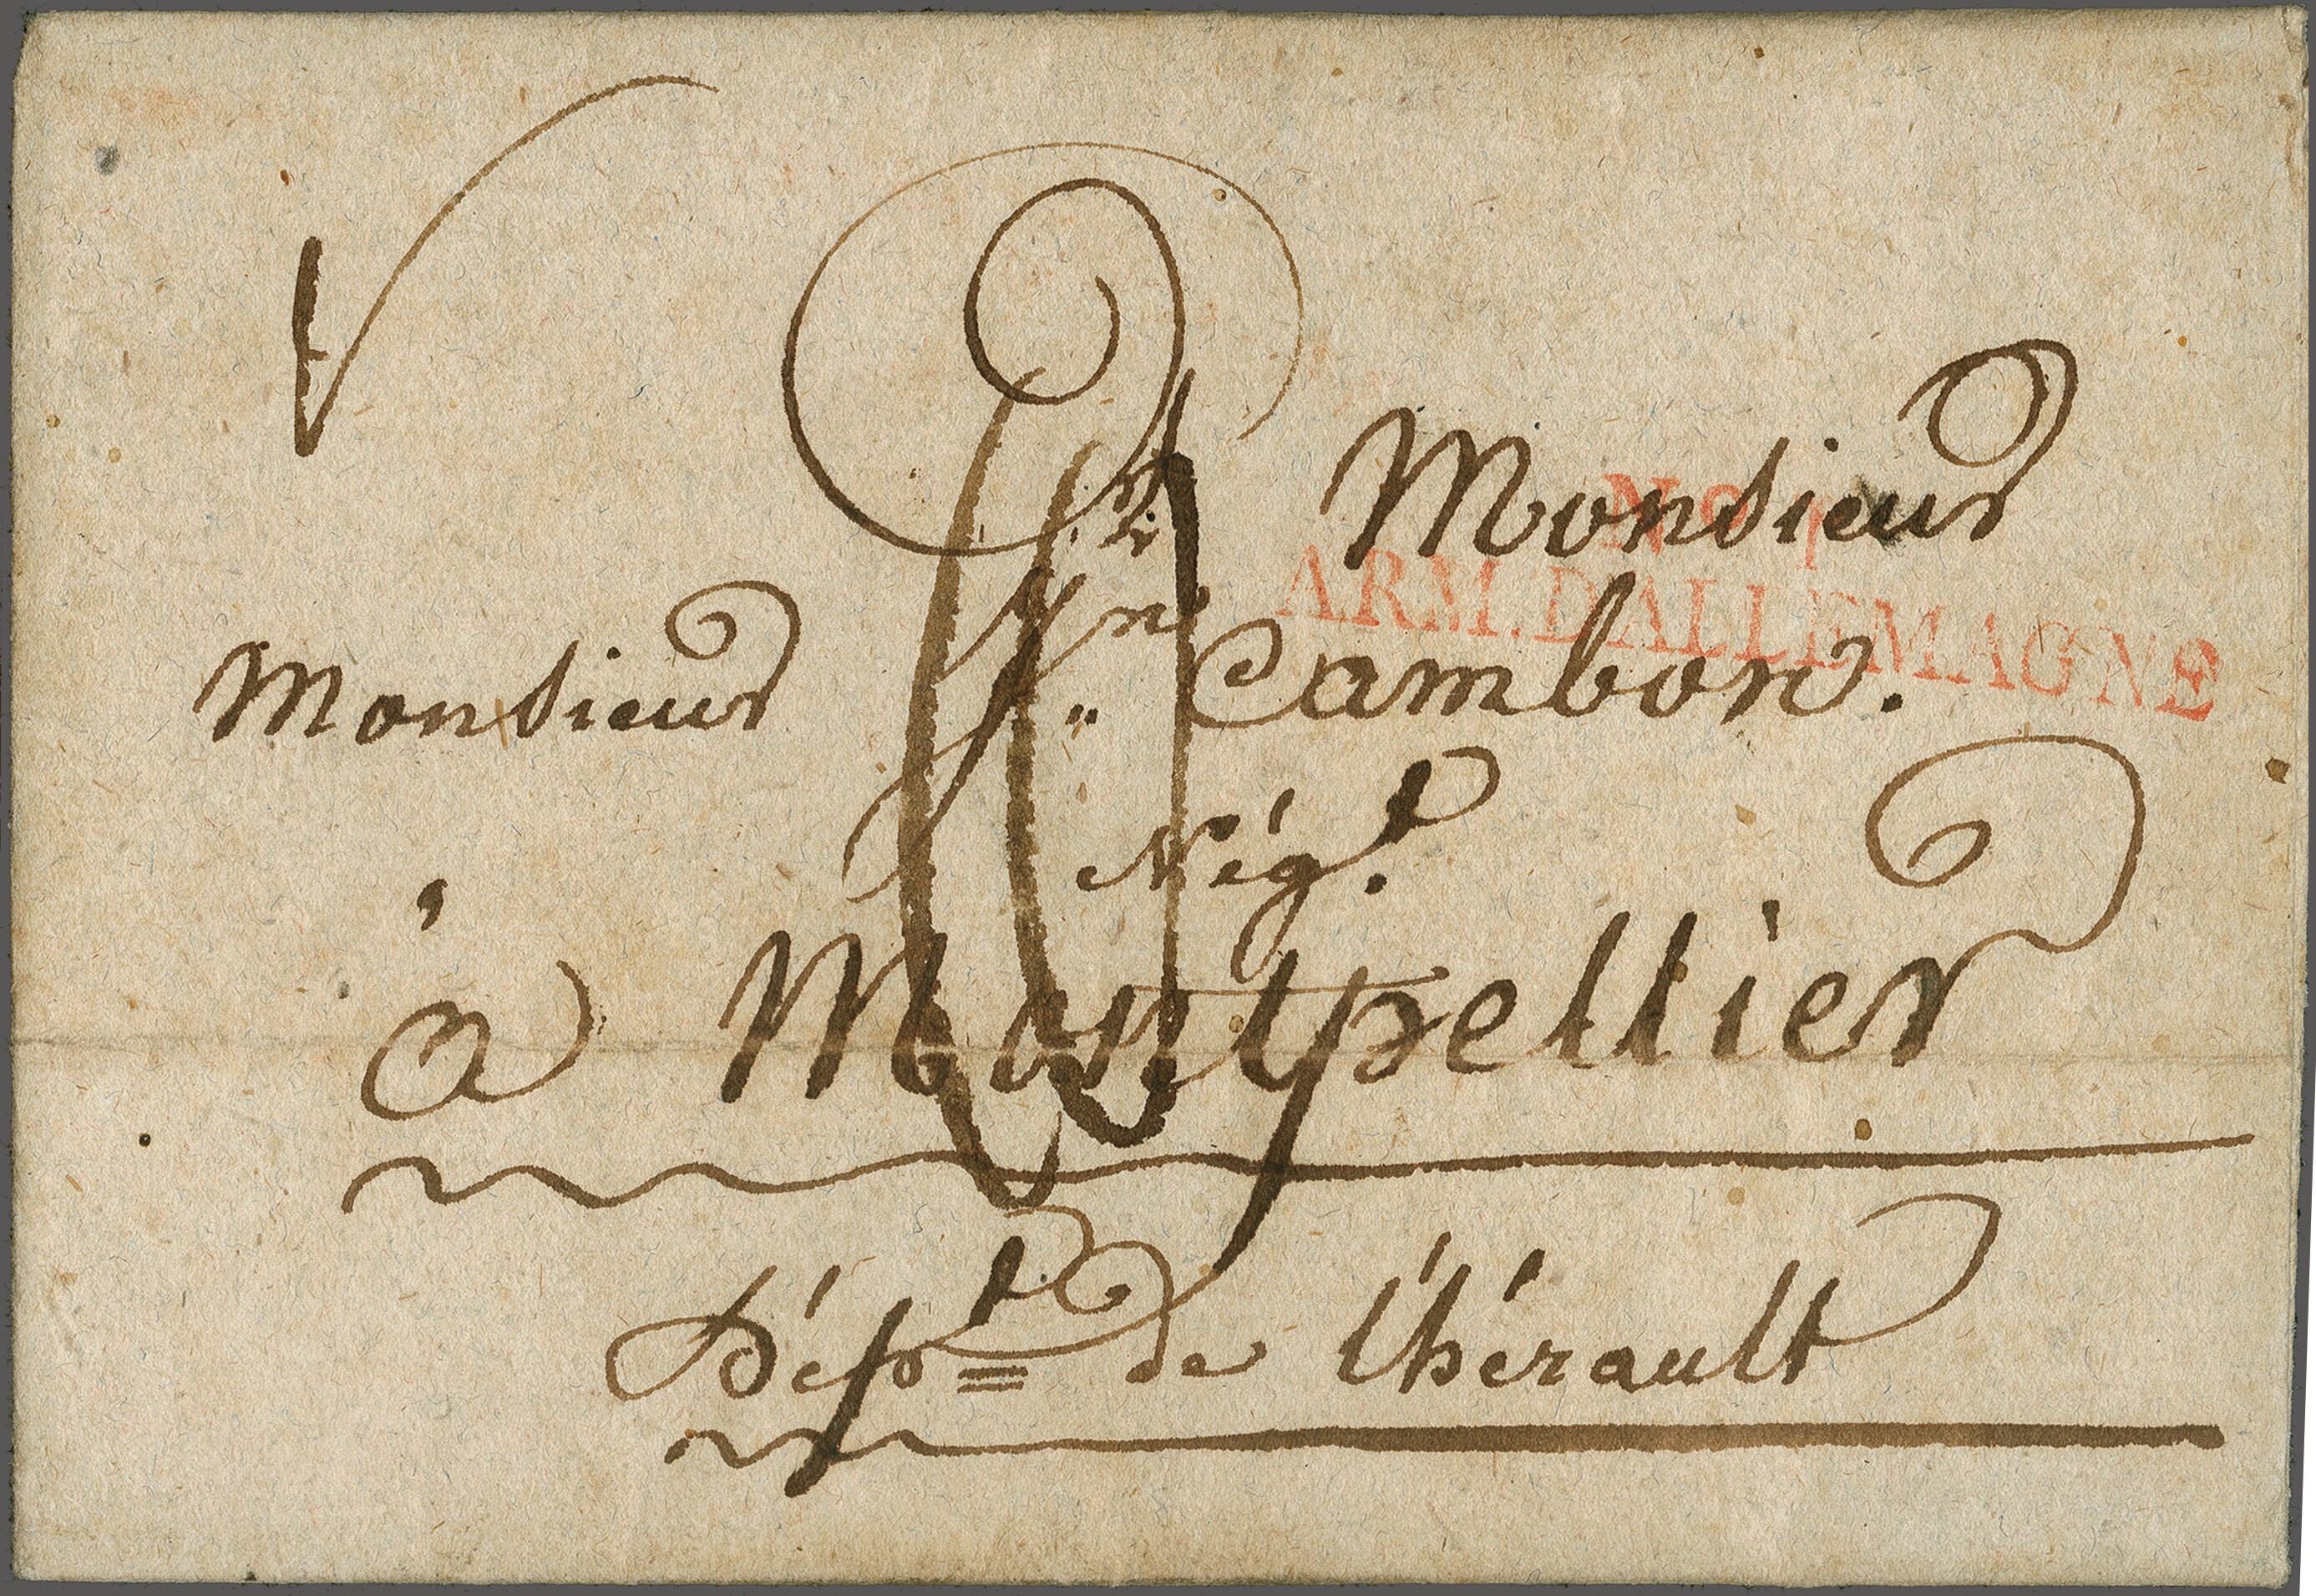 Monsieur
No 1
ARM. D'ALLEMAGNE
Monsieur Cambon.
Nég.t
à Montpellier
Dép.t de l'hérault